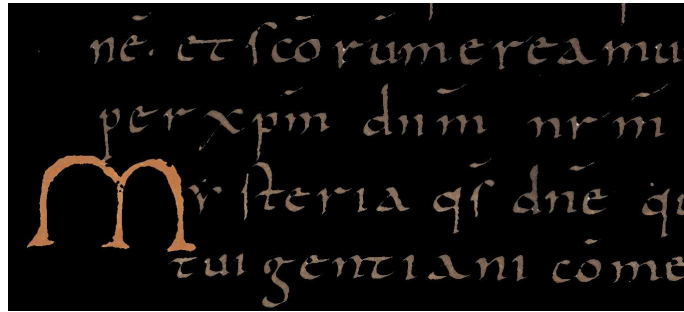 nē. et scōrūmereamu
per xpm̄ dnm̄ nr̄m̄
Mysteria qs̄ dnē qu
tui gentiani cōme